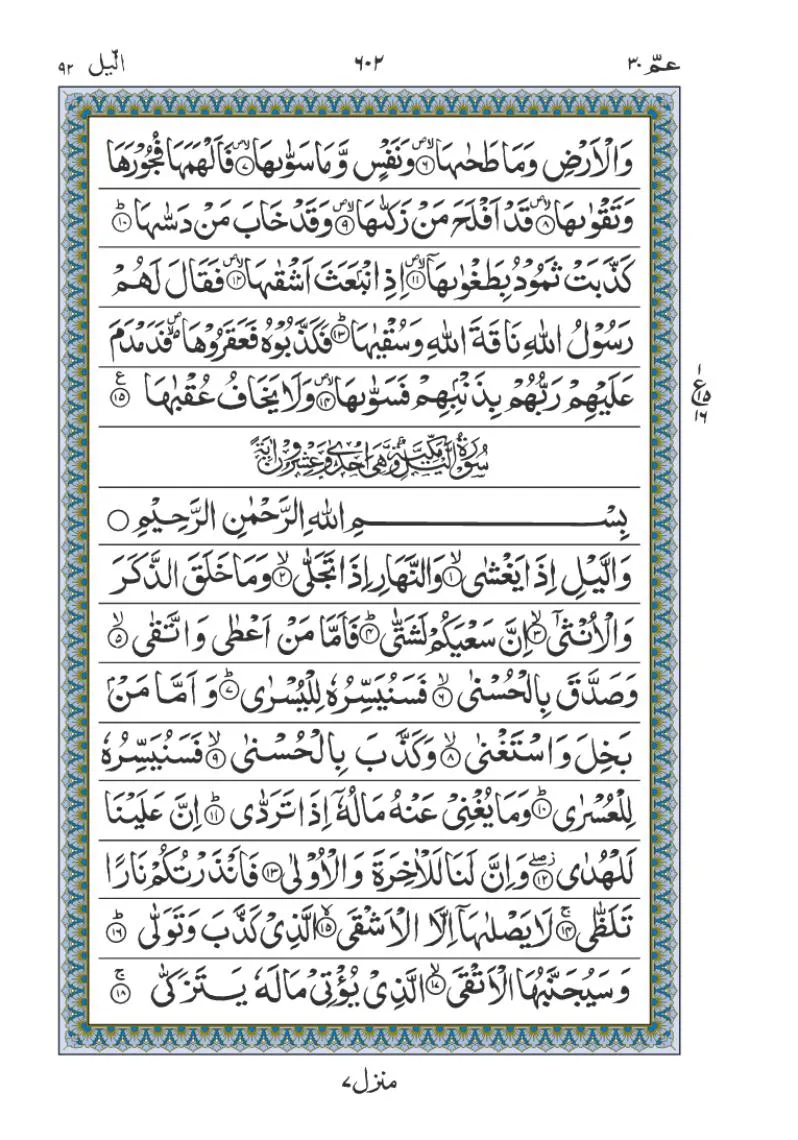 عمّ ٣٠ ٦٠٢ الّيل ٩٢
وَالْاَرْضِ وَمَا طَحٰىهَا ۪ۙ‏﴿۶﴾ وَنَفْسٍ وَّمَا سَوّٰىهَا ۪ۙ‏﴿۷﴾ فَاَلْهَمَهَا فُجُوْرَهَا
وَتَقْوٰىهَا ۪ۙ‏﴿۸﴾ قَدْ اَفْلَحَ مَنْ زَكّٰىهَا ۪ۙ‏﴿۹﴾ وَقَدْ خَابَ مَنْ دَسّٰىهَا ؕ‏﴿۱۰﴾
كَذَّبَتْ ثَمُوْدُ بِطَغْوٰىهَاۤ ۪ۙ‏﴿۱۱﴾ اِذِ انْۢبَعَثَ اَشْقٰىهَا ۪ۙ‏﴿۱۲﴾ فَقَالَ لَهُمْ
رَسُوْلُ اللّٰهِ نَاقَةَ اللّٰهِ وَسُقْيٰهَا ؕ‏﴿۱۳﴾ فَكَذَّبُوْهُ فَعَقَرُوْهَا ۪ۙ فَدَمْدَمَ
عَلَيْهِمْ رَبُّهُمْ بِذَنْۢبِهِمْ فَسَوّٰىهَا ۪ۙ‏﴿۱۴﴾ وَلَا يَخَافُ عُقْبٰهَا ‏﴿۱۵﴾ ع
١
ع ١٥
١٦
سُوْرَةُ الَّيْلِ مَكِّيَّةٌ وَّهِيَ اِحْدٰى وَعِشْرُوْنَ اٰيَةً
بِسْمِ اللّٰهِ الرَّحْمٰنِ الرَّحِيْمِ ○
وَالَّيْلِ اِذَا يَغْشٰى ۙ‏﴿۱﴾ وَالنَّهَارِ اِذَا تَجَلّٰى ۙ‏﴿۲﴾ وَمَا خَلَقَ الذَّكَرَ
وَالْاُنْثٰۤى ۙ‏﴿۳﴾ اِنَّ سَعْيَكُمْ لَشَتّٰى ؕ‏﴿۴﴾ فَاَمَّا مَنْ اَعْطٰى وَاتَّقٰى ۙ‏﴿۵﴾
وَصَدَّقَ بِالْحُسْنٰى ۙ‏﴿۶﴾ فَسَنُيَسِّرُهٗ لِلْيُسْرٰى ؕ‏﴿۷﴾ وَاَمَّا مَنْۢ
بَخِلَ وَاسْتَغْنٰى ۙ‏﴿۸﴾ وَكَذَّبَ بِالْحُسْنٰى ۙ‏﴿۹﴾ فَسَنُيَسِّرُهٗ
لِلْعُسْرٰى ؕ‏﴿۱۰﴾ وَمَا يُغْنِىْ عَنْهُ مَالُهٗۤ اِذَا تَرَدّٰى ؕ‏﴿۱۱﴾ اِنَّ عَلَيْنَا
لَلْهُدٰى ۖ‏﴿۱۲﴾ وَاِنَّ لَنَا لَلْاٰخِرَةَ وَالْاُوْلٰى ‏﴿۱۳﴾ فَاَنْذَرْتُكُمْ نَارًا
تَلَظّٰى ۚ‏﴿۱۴﴾ لَا يَصْلٰىهَاۤ اِلَّا الْاَشْقَى ۙ‏﴿۱۵﴾ الَّذِىْ كَذَّبَ وَتَوَلّٰى ؕ‏﴿۱۶﴾
وَسَيُجَنَّبُهَا الْاَتْقَى ۙ‏﴿۱۷﴾ الَّذِىْ يُؤْتِىْ مَالَهٗ يَتَزَكّٰى ۚ‏﴿۱۸﴾
منزل ٧